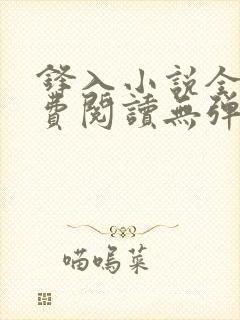 鋒入小說全
費閱讀無彈
喵嗚菜